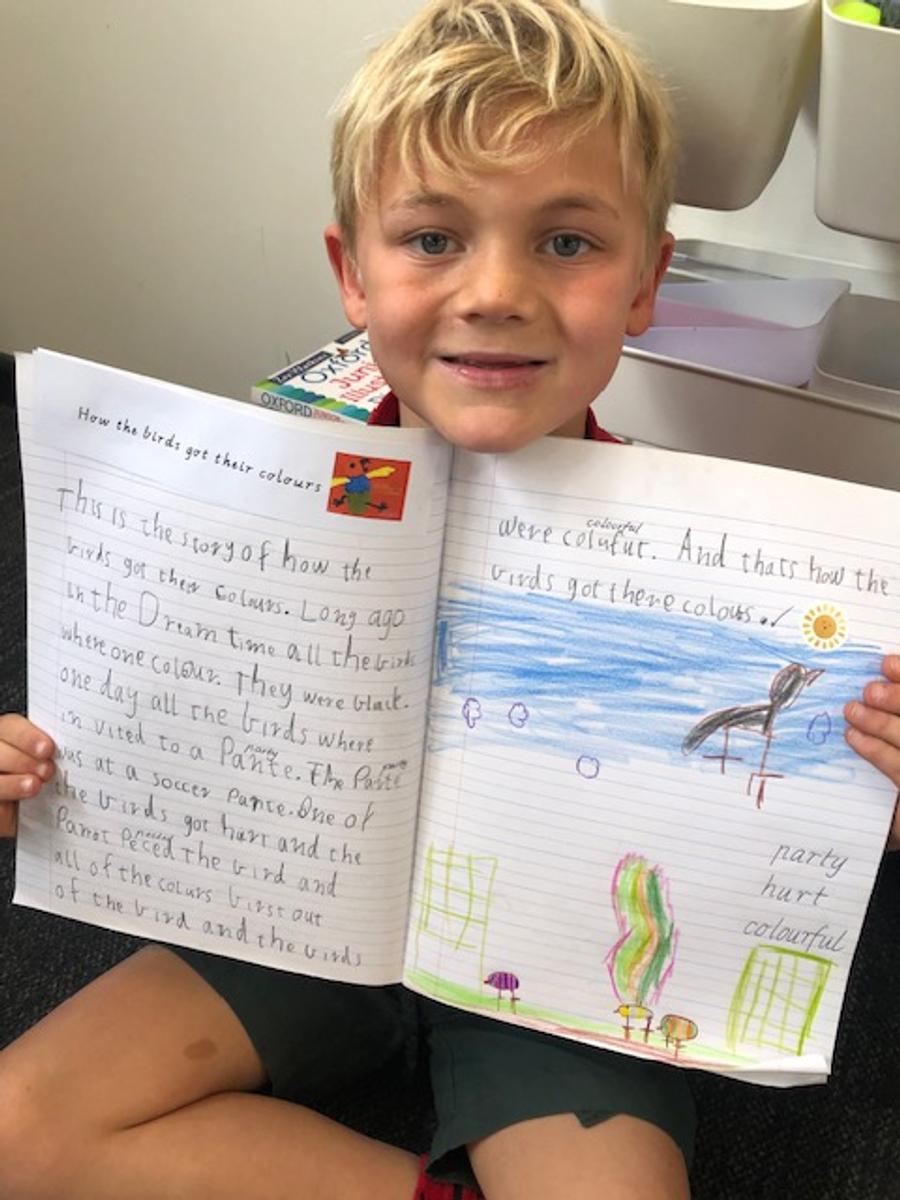 Oxford
OXFORD JUNIOR
How the birds got their colours
This is the story of how the
birds got their colours. Long ago
in the Dream time all the birds
where one colour. They were black.
one day all the birds where
party party
in vited to a Pante. The Pante
was at a soccer Pante. One of
the birds got hurt and the
Parrot Peced the bird and
all of the colurs birst out
of the bird and the birds
colourful
were colufut. And thats how the
birds got there colours.
party
hurt
colourful